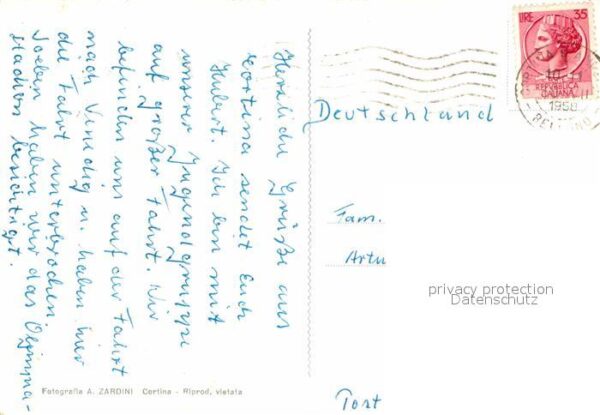 Herzliche Grüße aus
Cortina sendet Euch
Hubert. Ich bin mit
unserer Jugendgruppe
auf großer Fahrt. Wir
befinden uns auf der Fahrt
nach Venedig u. haben hier
die Fahrt unterbrochen.
Soeben haben wir das Olympia-
stadion besichtigt.
Deutschland
Fam.
Artu
Tort
privacy protection
Datenschutz
LIRE 35
REPVBBLICA
ITALIANA
1958
Fotografia A. ZARDINI Cortina - Riprod. vietata